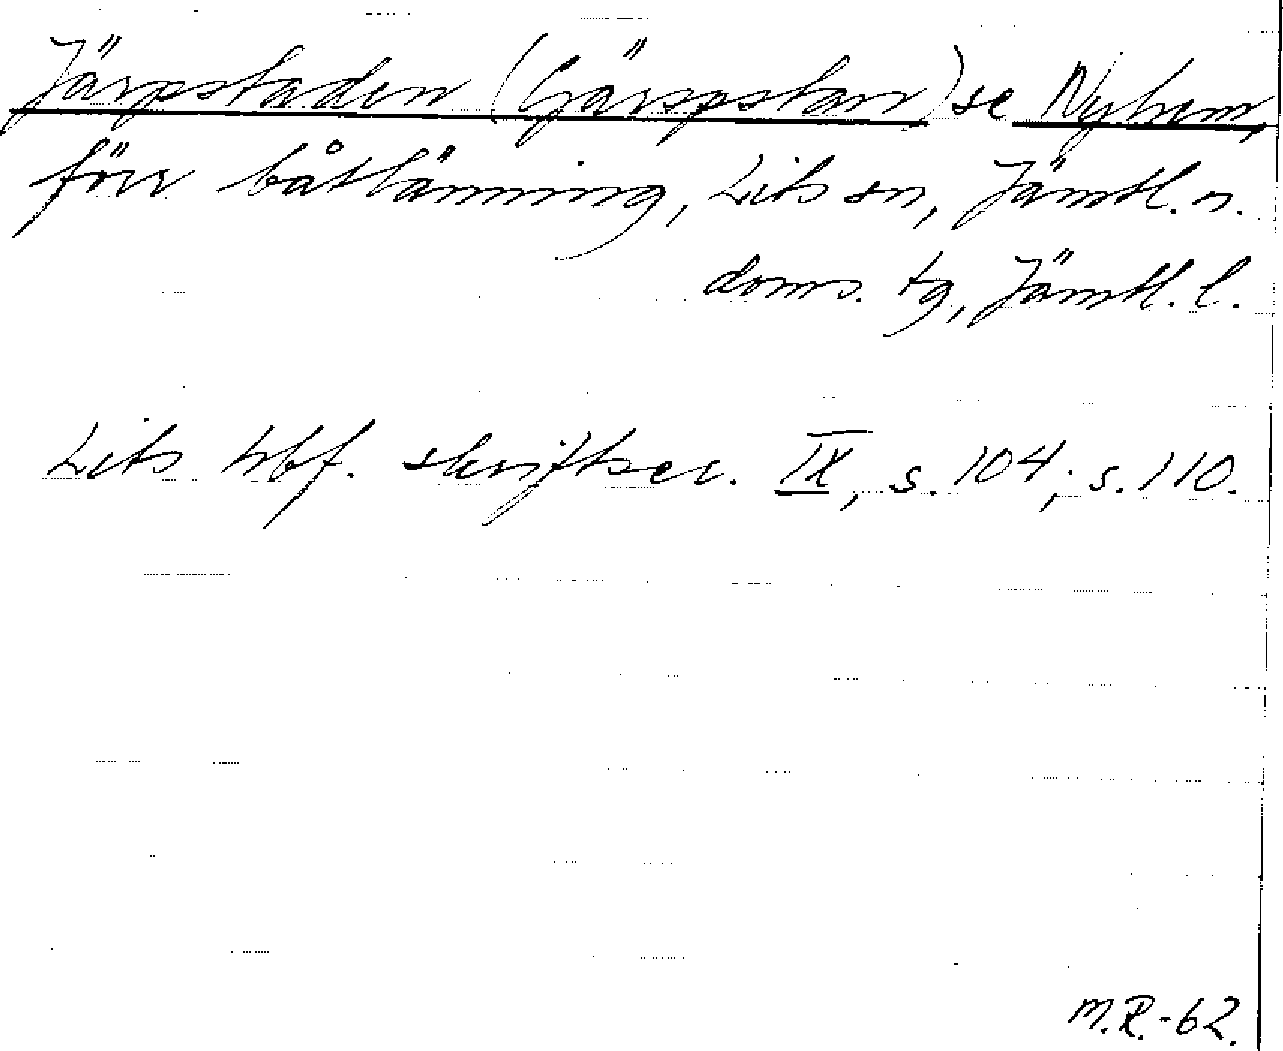 Järpstaden (Gjärpstan) se Nyhem,
förr båtlänning, Lits sn, Jämtl. n.
doms. tg, Jämtl. l.
Lits hbf. skriftser. IX, s. 104; s. 110.
M.R.-62.